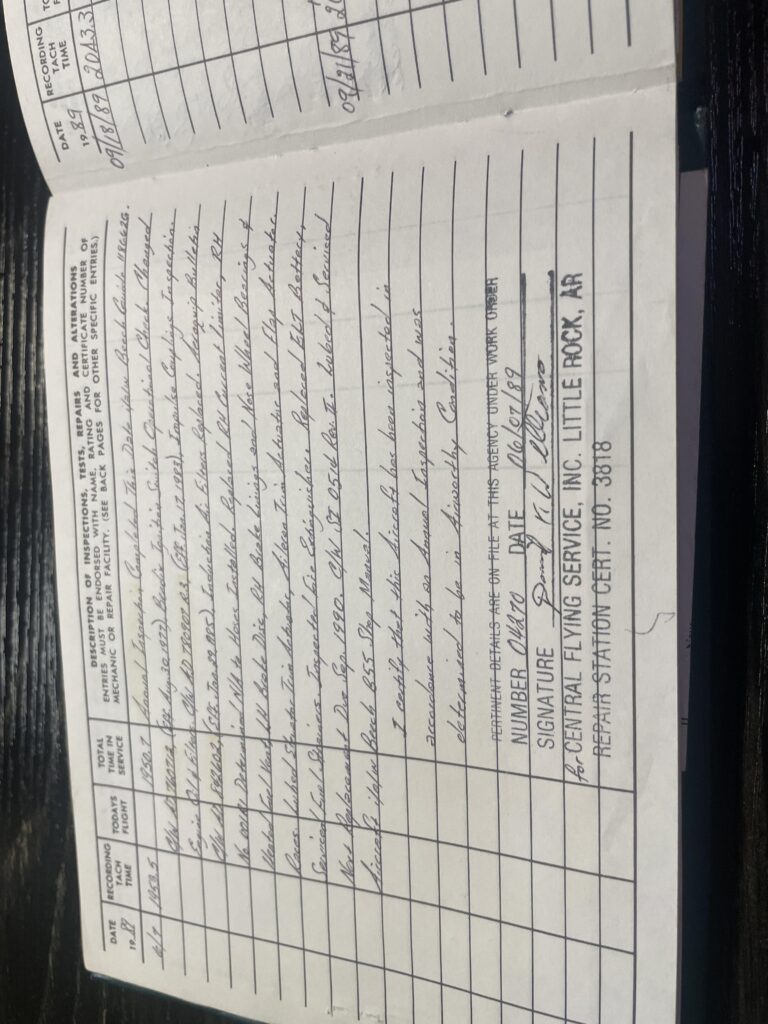 DATE 19 89
RECORDING TACH TIME
TODAYS FLIGHT
TOTAL TIME IN SERVICE
DESCRIPTION OF INSPECTIONS, TESTS, REPAIRS AND ALTERATIONS
ENTRIES MUST BE ENDORSED WITH NAME, RATING AND CERTIFICATE NUMBER OF
MECHANIC OR REPAIR FACILITY. (SEE BACK PAGES FOR OTHER SPECIFIC ENTRIES.)
6/7 1958.5 1950.7 Annual Inspection Completed This Date Beech Guide
C/W AD (FPR Aug 30, 1977) Ignition Switch Operational Check. Changed
Engine Oil & Filters. C/W AD (FPR Jan 17, 1983) Impulse Coupling Inspection
C/W AD (FPR) Induction Air Filters Replaced. Bulletin
No Determined N/A to Hoses Installed. Replaced RH Current Limiter, RH
LH Brake Disc, RH Brake Linings and Nose Wheel Bearings &
Races. Lubed Elevator Trim Actuator, Aileron Trim Actuator and Flap Actuator.
Serviced Fuel Strainers. Inspected Fire Extinguishers. Replaced ELT Battery,
Next Replacement Due Sep. 1990. C/W Rev II. Lubed & Serviced
Aircraft Beech B55 Shop Manual.
I certify that this Aircraft has been inspected in
accordance with an Annual Inspection and was
determined to be in Airworthy Condition.
PERTINENT DETAILS ARE ON FILE AT THIS AGENCY UNDER WORK ORDER
NUMBER 04270 DATE 06/07/89
SIGNATURE
for CENTRAL FLYING SERVICE, INC. LITTLE ROCK, AR
REPAIR STATION CERT. NO. 3818
DATE 19 89
RECORDING TACH TIME
09/18/89 2043.3
09/21/89